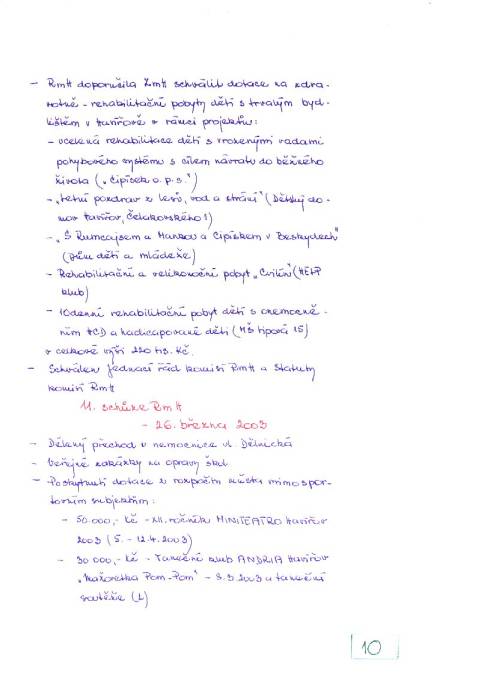 - RmH doporučila ZmH schválit dotace na zdra-
votně - rehabilitační pobyty dětí s trvalým byd-
lištěm v Havířově v rámci projektů:
- ucelená rehabilitace dětí s vrozenými vadami
pohybového systému s cílem návratu do běžného
života („Čipísek o.p.s.")
- „Letní pozdrav z lesů, vod a strání" (Dětský do-
mov Havířov, Čelakovského 1)
- „S Rumcajsem a Mankou a Cipískem v Beskydech"
(Dům dětí a mládeže)
- Rehabilitační a velikonoční pobyt „Cvilín" (HELP
klub)
- 10denní rehabilitační pobyt dětí s onemocně-
ním HCD a hadicapované děti (MŠ Lipová 15)
v celkové výši 220 tis. Kč.
- Schválen jednací řád komisí RmH a Statuty
komisí RmH
11. schůze RmH
- 26. března 2003
- Dělený přechod v nemocnice ul. Dělnická
- Veřejné zakázky na opravy škol
- Poskytnutí dotace z rozpočtu města mimospor-
tovním subjektům:
- 50.000,- Kč - XII. ročník MINITEATRO Havířov
2003 (5. - 12.4.2003)
- 30 000,- Kč - Taneční klub ANDRIA Havířov
„Mažoretka Pom-Pom" - 8.3.2003 a taneční
soutěže (2)
10